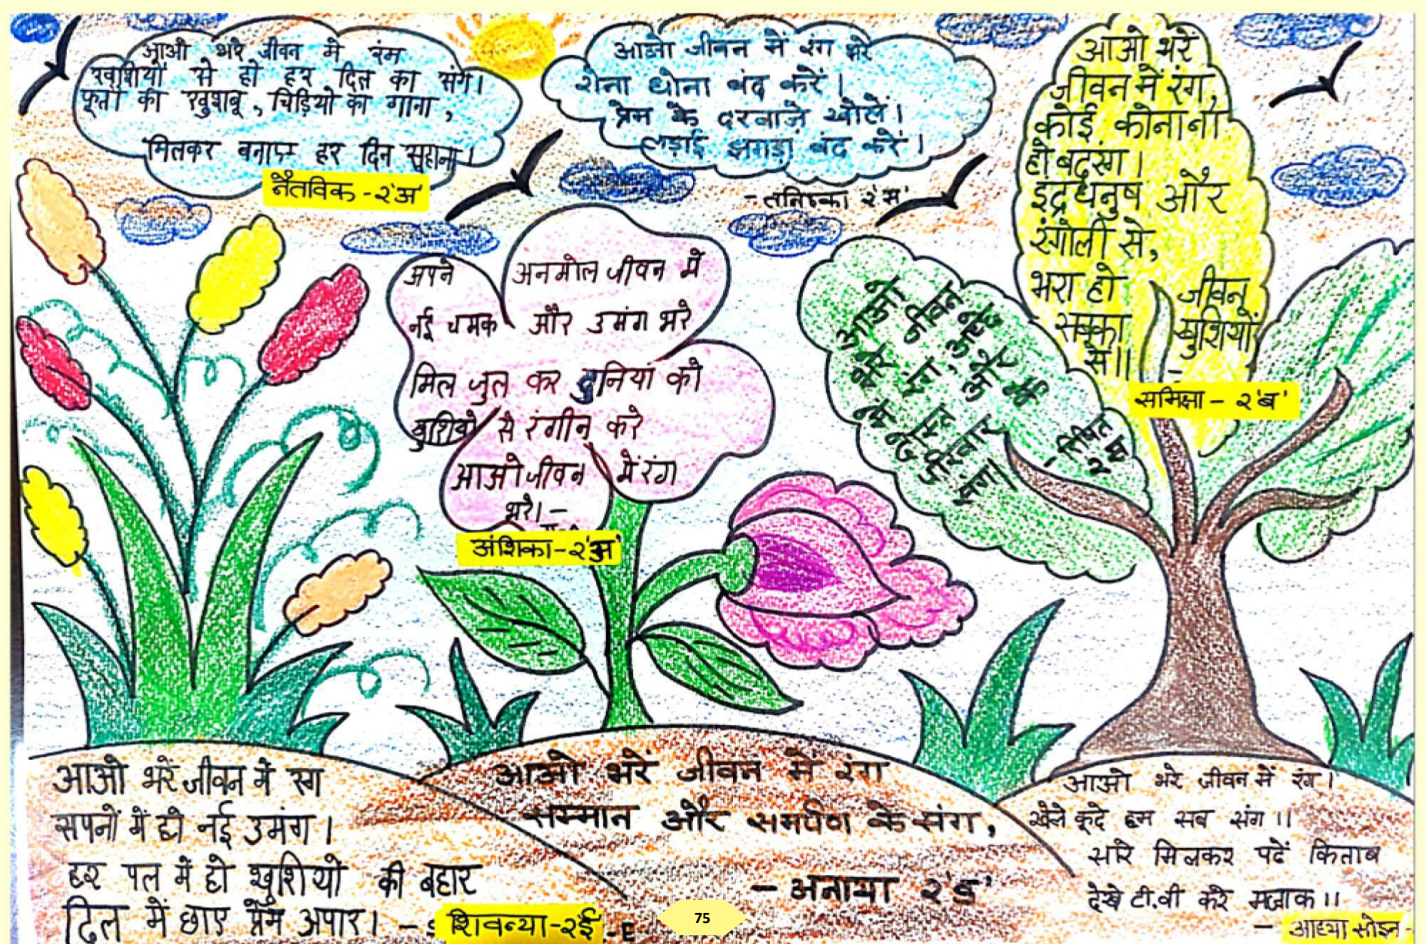 आओ भरे जीवन में रंग
खुशियों से हो हर दिल का संग।
फूलों की खुशबू, चिड़ियों का गाना,
मिलकर बनाए हर दिन सुहाना।
नैतविक - २'अ'
आओ जीवन में रंग भरे
रोना धोना बंद करें।
प्रेम के दरवाजे खोलें।
लड़ाई झगड़ा बंद करें।
- तनिष्का २'स'
आओ भरे
जीवन में रंग,
कोई कोना ना
हो बदरंग।
इंद्रधनुष और
रंगोली से,
भरा हो जीवन
सबका खुशियों
से।।
समिक्षा - २'ब'
अपने अनमोल जीवन में
नई चमक और उमंग भरे
मिल जुल कर दुनिया को
खुशियों से रंगीन करे
आओ जीवन में रंग
भरे।-
अंशिका-२'अ'
आओ भरे जीवन में रंग
सपनों में हो नई उमंग।
हर पल में हो खुशियों की बहार
दिल में छाए प्रेम अपार। -
शिवन्या-२ई
आओ भरें जीवन में रंग
सम्मान और समर्पण के संग,
- अनाया २'ड'
आओ भरे जीवन में रंग।
खेले कूदे हम सब संग।।
सारे मिलकर पढें किताब
देखे टी.वी करे मज़ाक।।
- आद्या सोइन -
75